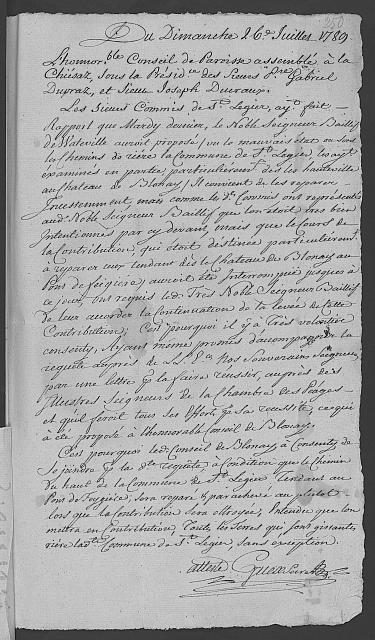 250
Du Dimanche 26e Juillet 1789
Lhonorble Conseil de Paroisse assemblé à la
Chiésaz, sous la Présidce des Sieurs Pre Gabriel
Dupraz, et Sieur Joseph Ducraux.
Les Sieurs Commis de St Legier, ayt fait
Rapport que Mardy dernier, le Noble Seigneur Baillif
de Wateville auroit proposé, vu le mauvais état où sont
les Chemins de rière la Commune de St Legier, les ayt
examinés en partie, particulièrement dès les hauteville
au Chateau de Blonay, Il convient de les reparer
Incessemment, mais comme les drs Commis ont représentés
audt Noble Seigneur Baillif que l'on étoit très bien
Intentionnés par cy devant, mais que le cours de
la Contribution, qui étoit destinée particulièrement
à réparer ceux tendant dès le Chateau de Blonay au
Pont de Feigière, auroit été Interrompue jusques à
ce jour, ont requis led. Très Noble Seigneur Baillif
de leur accorder la Continuation de la levée de cette
Contribution; C'est pourquoi il y a Très volontier
consenty, Ayant même promis d'accompagner la
requête auprès de LL. Ees Nos Souverains Seigneurs
par une lettre p la faire reussir, auprès des
Illustres Seigneurs de la Chambre des Péages
et qu'il feroit tous ses efforts p sa reussite, ce qui
a été proposé à l'honorable Conseil de Blonay.
C'est pourquoi led. Conseil de Blonay à Consenty de
se joindre p la dte requête, à condition que le Chemin
du haut de la Commune de St Legier Tendant au
Pont de Feygiére, sera reparé & parachevé au plutot
lors que la Contribution sera ottroyée, Entendu que l'on
mettra en Contribution, Toute les Terres qui sont gisantes
rière ladte Commune de St Legier, sans exception.
atteste